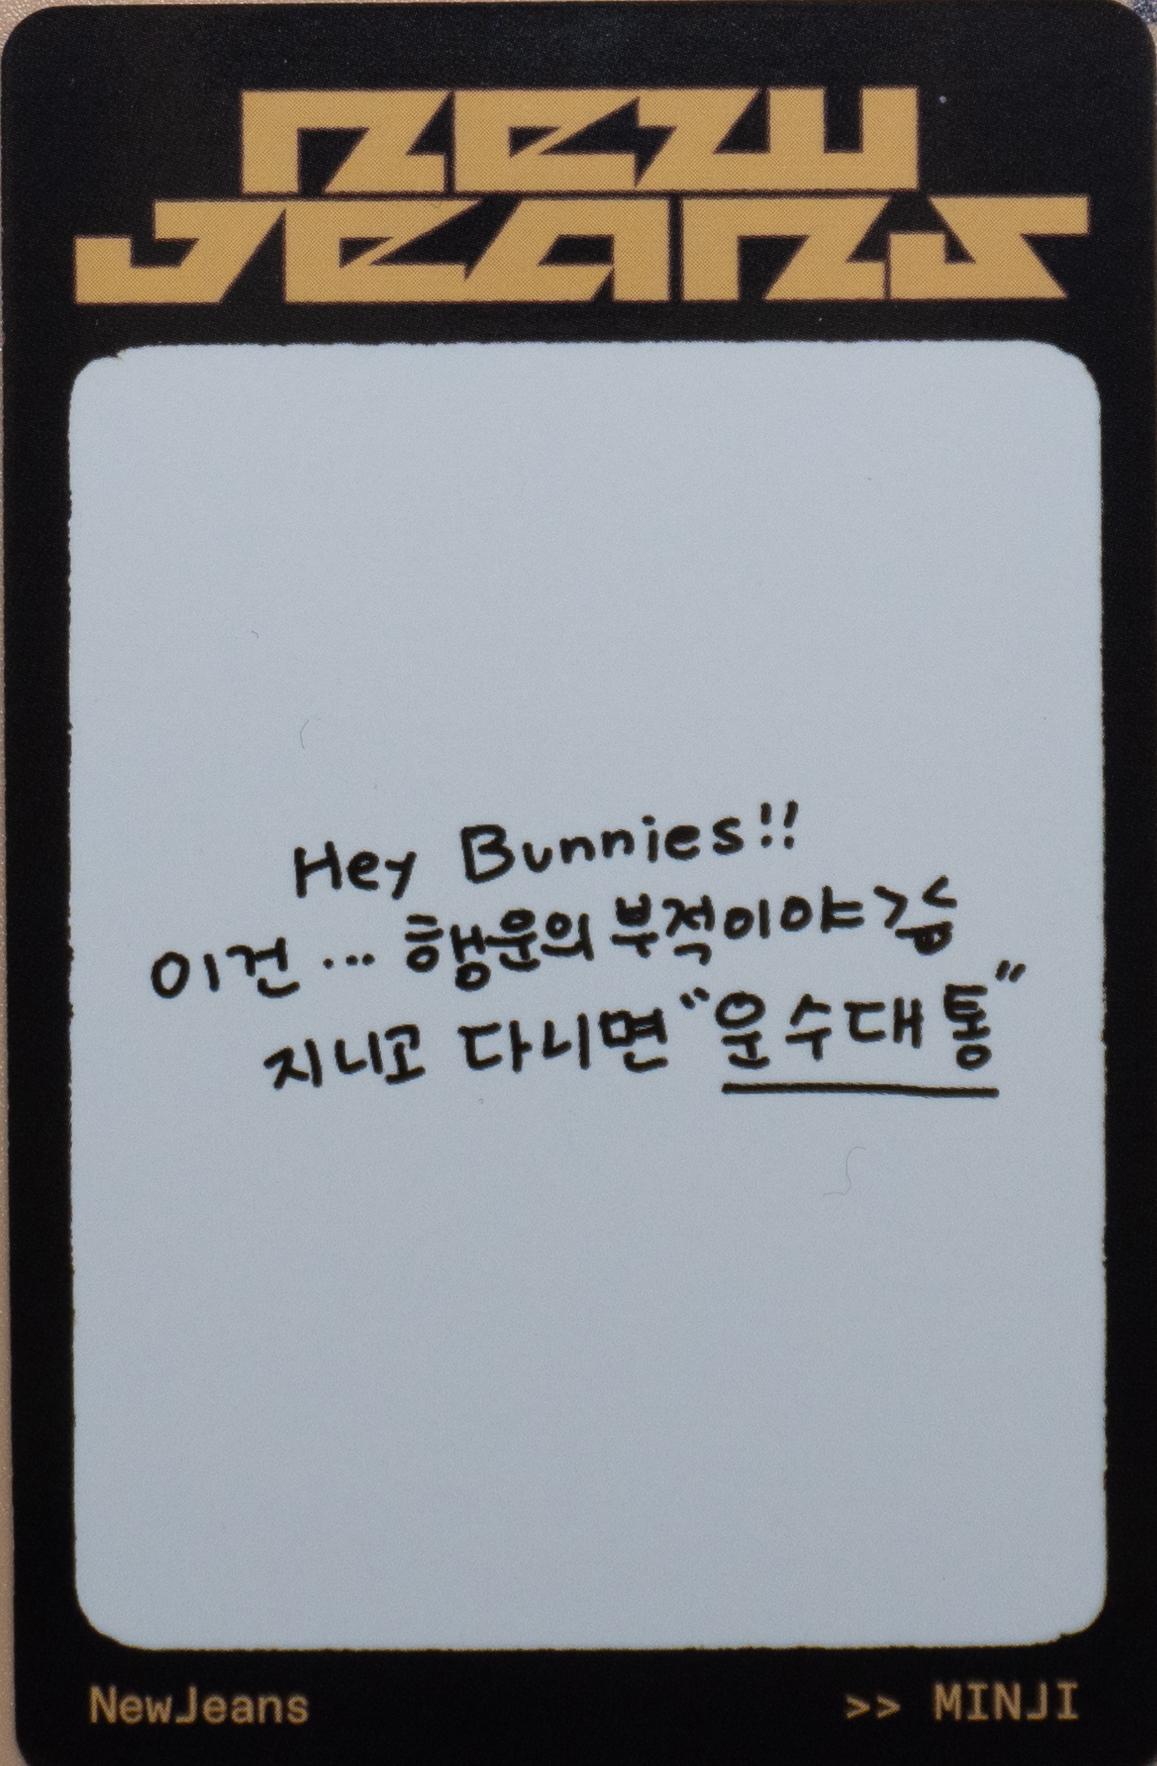 new
jeans
Hey Bunnies!!
이건... 행운의 부적이야
지니고 다니면 “운수대통”
NewJeans >> MINJI